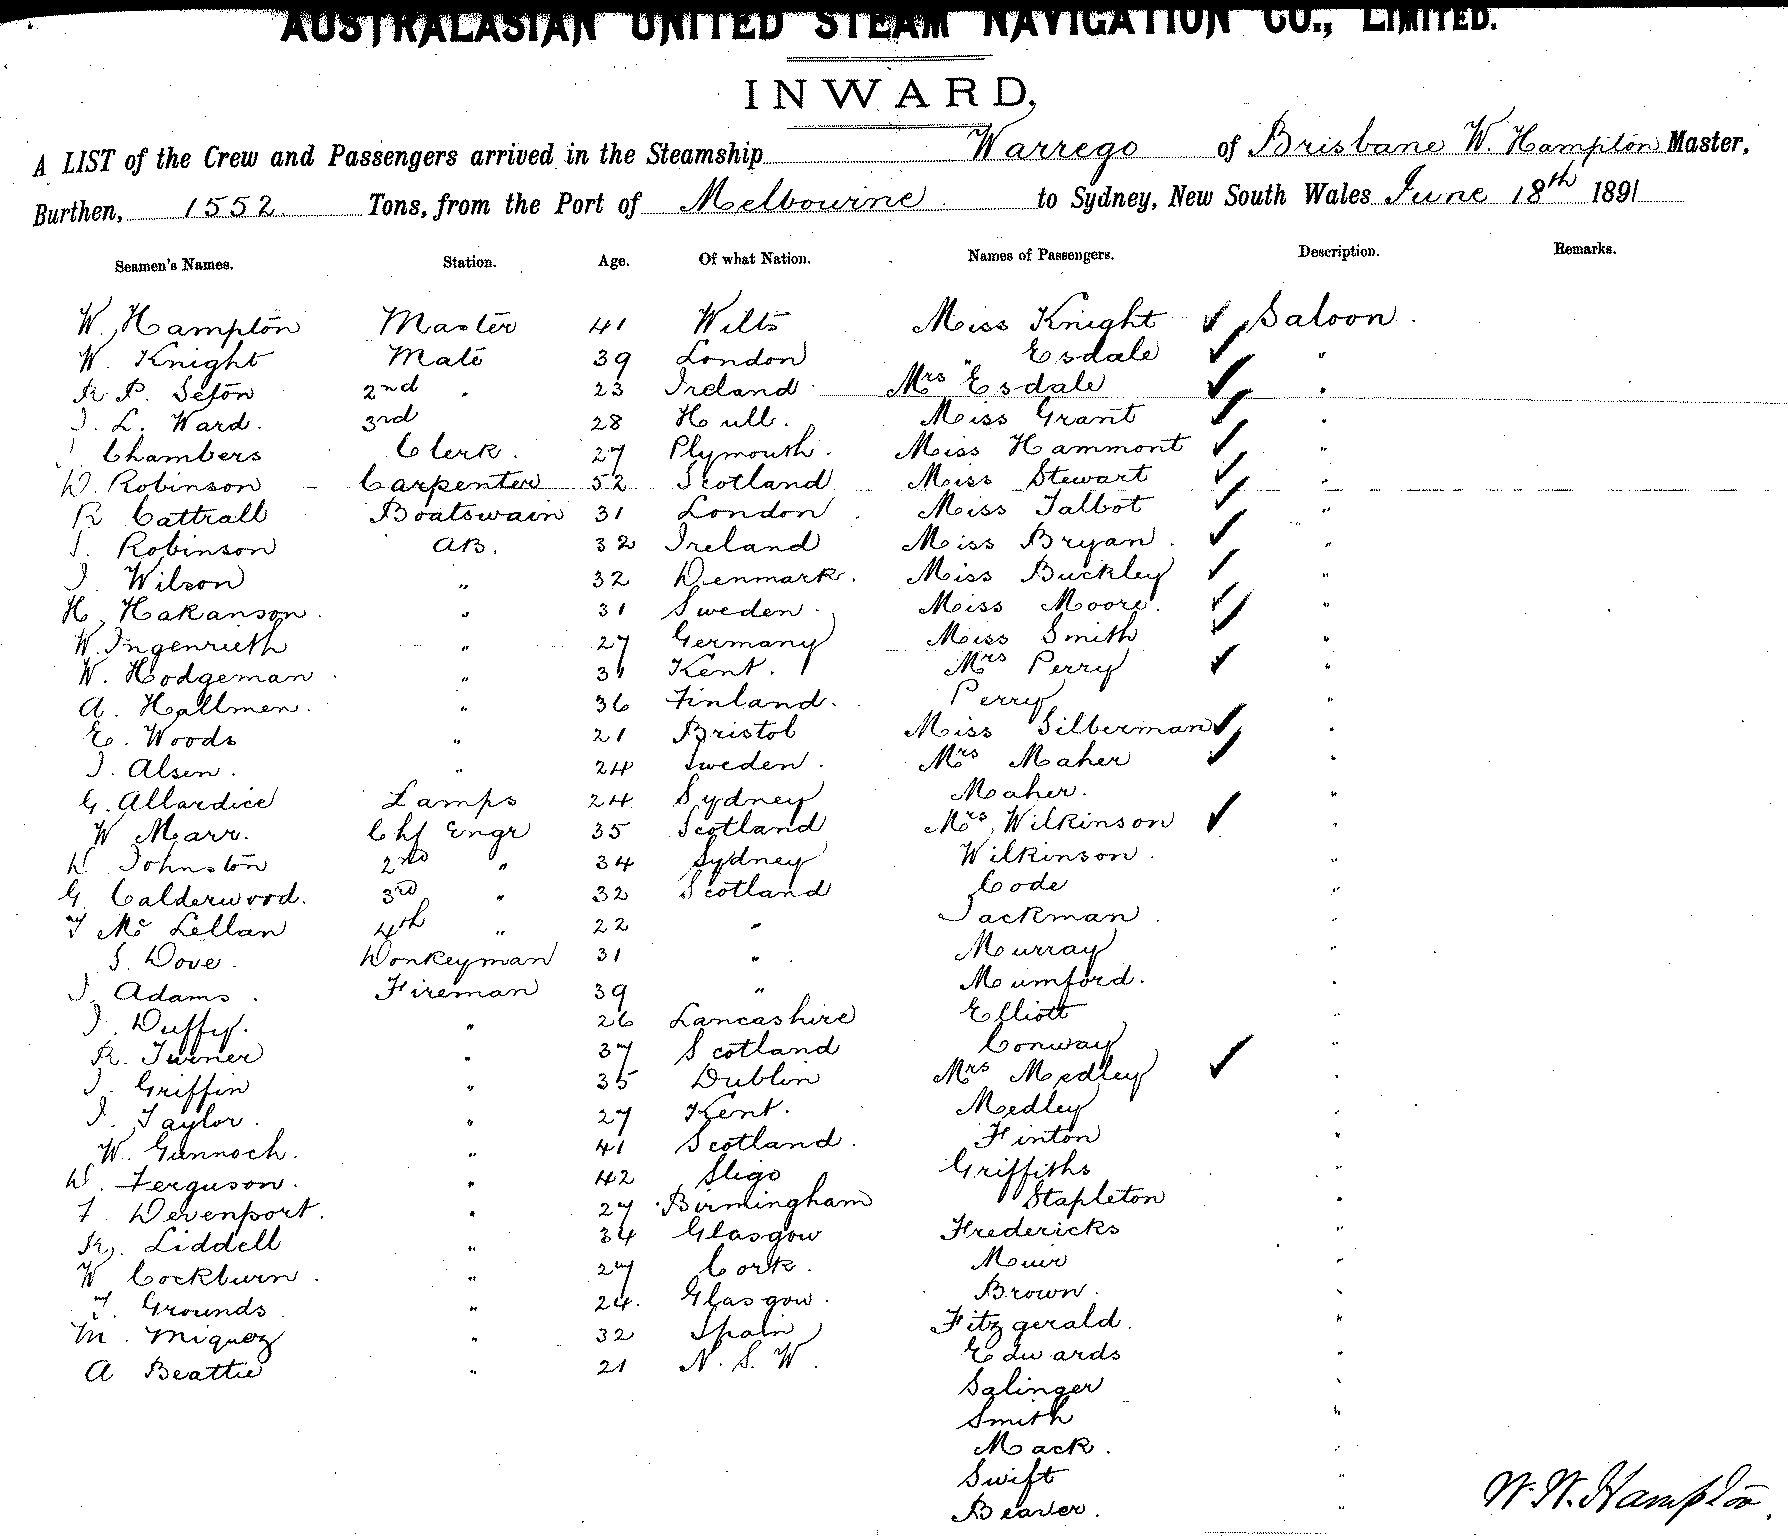 AUSTRALASIAN UNITED STEAM NAVIGATION CO., LIMITED.
INWARD,
A LIST of the Crew and Passengers arrived in the Steamship Warrego of Brisbane W. Hampton Master,
Burthen, 1552 Tons, from the Port of Melbourne to Sydney, New South Wales June 18th 1891
Seamen's Names. Station. Age. Of what Nation. Names of Passengers. Description. Remarks.
W. Hampton Master 41 Wilts Miss Knight ✓ Saloon.
W. Knight Mate 39 London " Esdale ✓ "
R. P. Sefton 2nd " 23 Ireland Mrs Esdale ✓ "
J. L. Ward. 3rd 28 Hull. Miss Grant ✓ "
Chambers Clerk. 27 Plymouth. Miss Hammont ✓ "
D. Robinson Carpenter 52 Scotland Miss Stewart ✓ "
R Cattrall Boatswain 31 London Miss Talbot ✓ "
J. Robinson AB. 32 Ireland Miss Bryan. ✓ "
J. Wilson " 32 Denmark. Miss Buckley ✓ "
H. Hakanson. " 31 Sweden. Miss Moore. ✓ "
W. Ingenrieth " 27 Germany Miss Smith ✓ "
W. Hodgeman " 31 Kent. Mrs Perry ✓ "
A. Hallmen. " 36 Finland. Perry "
E. Woods " 21 Bristol Miss Silberman ✓ "
J. Alsen. " 24 Sweden. Mrs Maher ✓ "
G. Allardice Lamps 24 Sydney Maher. "
W Marr. Chf Engr 35 Scotland Mrs. Wilkinson ✓ "
D Johnston 2nd " 34 Sydney Wilkinson. "
G. Calderwood. 3rd " 32 Scotland Code "
T Mc Lellan 4th " 22 " Jackman. "
S. Dove. Donkeyman 31 " Murray "
J. Adams. Fireman 39 " Mumford. "
J. Duffy. " 26 Lancashire Elliott "
R. Turner " 37 Scotland Conway "
J. Griffin " 35 Dublin Mrs Medley ✓ "
J. Taylor. " 27 Kent. Medley "
W. Gunnoch. " 41 Scotland. Finton "
D. Ferguson. " 42 Sligo Griffiths "
F. Devenport. " 27 Birmingham Stapleton "
R. Liddell " 34 Glasgow Fredericks "
W Cockburn. " 27 Cork. Muir "
T. Grounds " 24. Glasgow. Brown. "
M. Miquez " 32 Spain Fitzgerald. "
A Beattie " 21 N. S. W. Edwards "
Salinger "
Smith "
Mack. "
Swift "
Beaver. "
W. W. Hampton.